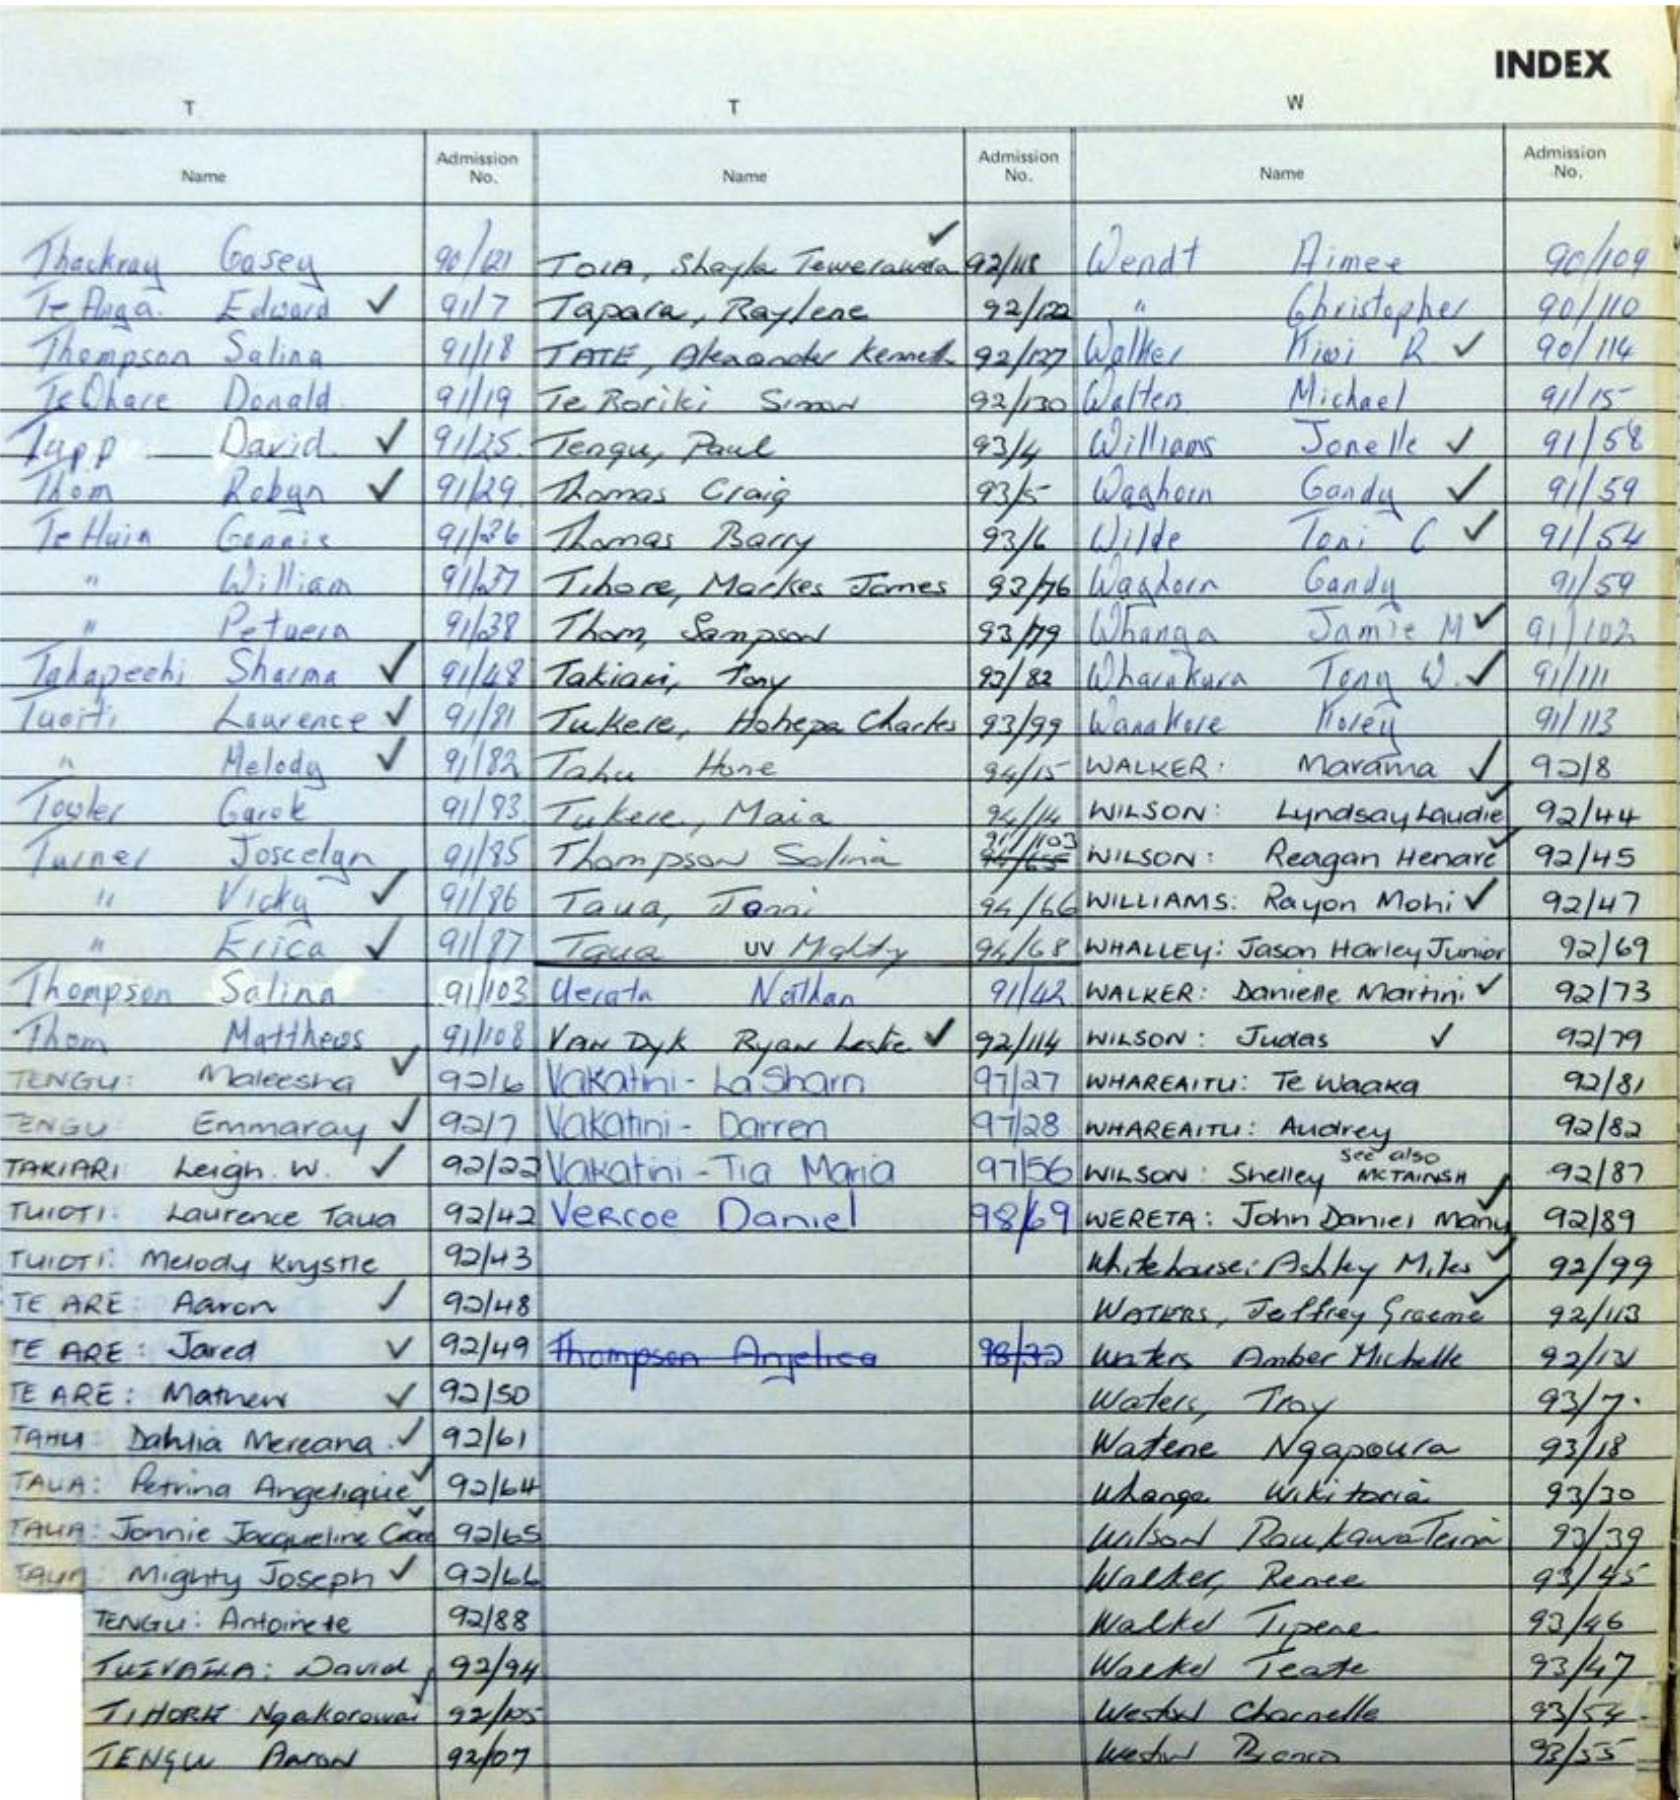 INDEX
T
Name Admission No.
Thackray Casey 90/121
Te Anga. Edward ✓ 91/7
Thompson Salina 91/18
Te Ohare Donald 91/19
Tapp David ✓ 91/25
Thom Robyn ✓ 91/29
Te Huia 91/36
" William 91/37
" Petuera 91/38
Takapechi Sharma ✓ 91/48
Tuoiti Laurence ✓ 91/81
" Melody ✓ 91/82
Towler Garok 91/83
Turner Joscelyn 91/85
" Vicky ✓ 91/86
" Erica ✓ 91/87
Thompson Salina 91/103
Thom Matthews 91/108
TENGU: Maleesha ✓ 92/6
TENGU Emmaray ✓ 92/7
TAKIARI Leigh. W. ✓ 92/22
TUIOTI: Laurence Taua 92/42
TUIOTI: Melody Krystle 92/43
TE ARE: Aaron ✓ 92/48
TE ARE: Jared ✓ 92/49
TE ARE: Mathew ✓ 92/50
TAHU: Dahlia Mereana ✓ 92/61
TAUA: Petrina Angelique ✓ 92/64
TAUA: Jonnie Jacqueline ✓ 92/65
TAUA: Mighty Joseph ✓ 92/66
TENGU: Antoinete 92/88
TUIVAILA: David 92/94
Ngakorowai 92/105
TENGU Aaron 92/07
T
Name Admission No.
TOIA, Shayla ✓ 92/118
Tapara, Raylene 92/122
TATE, Alexander Kenneth 92/127
Te Roriki Simon 92/130
Tengu, Paul 93/4
Thomas Craig 93/5
Thomas Barry 93/6
Tihore, Markes James 93/76
Thom, Sampson 93/79
Takiari, Tony 93/82
Tukere, Hohepa Charles 93/99
Tahu Hone 94/15
Tukere, Maia 94/14
Thompson Salina 91/103
Taua, Jonni 94/66
Taua Mighty 94/68
UV
Uerata Nathan 91/42
VAN Dyk Ryan Leslie ✓ 92/114
Vakatini - LaSharn 97/27
Vakatini - Darren 97/28
Vakatini - Tia Maria 97/56
Vercoe Daniel 98/69
Thompson Angelica 98/32
W
Name Admission No.
Wendt Aimee 90/109
" Christopher 90/110
Walker Kiwi R ✓ 90/114
Walters Michael 91/15
Williams Jonelle ✓ 91/58
Waghorn Candy ✓ 91/59
Wilde Toni C ✓ 91/54
Waghorn Candy 91/59
Whanga Jamie M ✓ 91/102
Wharakura Tony W. ✓ 91/111
Wanakore Korey 91/113
WALKER: Marama ✓ 92/8
WILSON: Lyndsay Laudie ✓ 92/44
WILSON: Reagan Henare ✓ 92/45
WILLIAMS: Rayon Mohi ✓ 92/47
WHALLEY: Jason Harley Junior 92/69
WALKER: Danielle Martini ✓ 92/73
WILSON: Judas ✓ 92/79
WHAREAITU: Te Waaka 92/81
WHAREAITU: Audrey 92/82
WILSON: Shelley see also MCTAINSH 92/87
WERETA: John Daniel Manu ✓ 92/89
Whitehouse: Ashley Miles ✓ 92/99
WATERS, Jeffrey Graeme ✓ 92/113
Waters Amber Michelle 92/131
Waters, Troy 93/7.
Watene Ngapoura 93/18
Whanga Wikitoria 93/30
Wilson Raukawa Teina 93/39
Walker, Renee 93/45
Walker Tipene 93/46
Walker Teate 93/47
Weston Charnelle 93/54
Weston Bronco 93/55